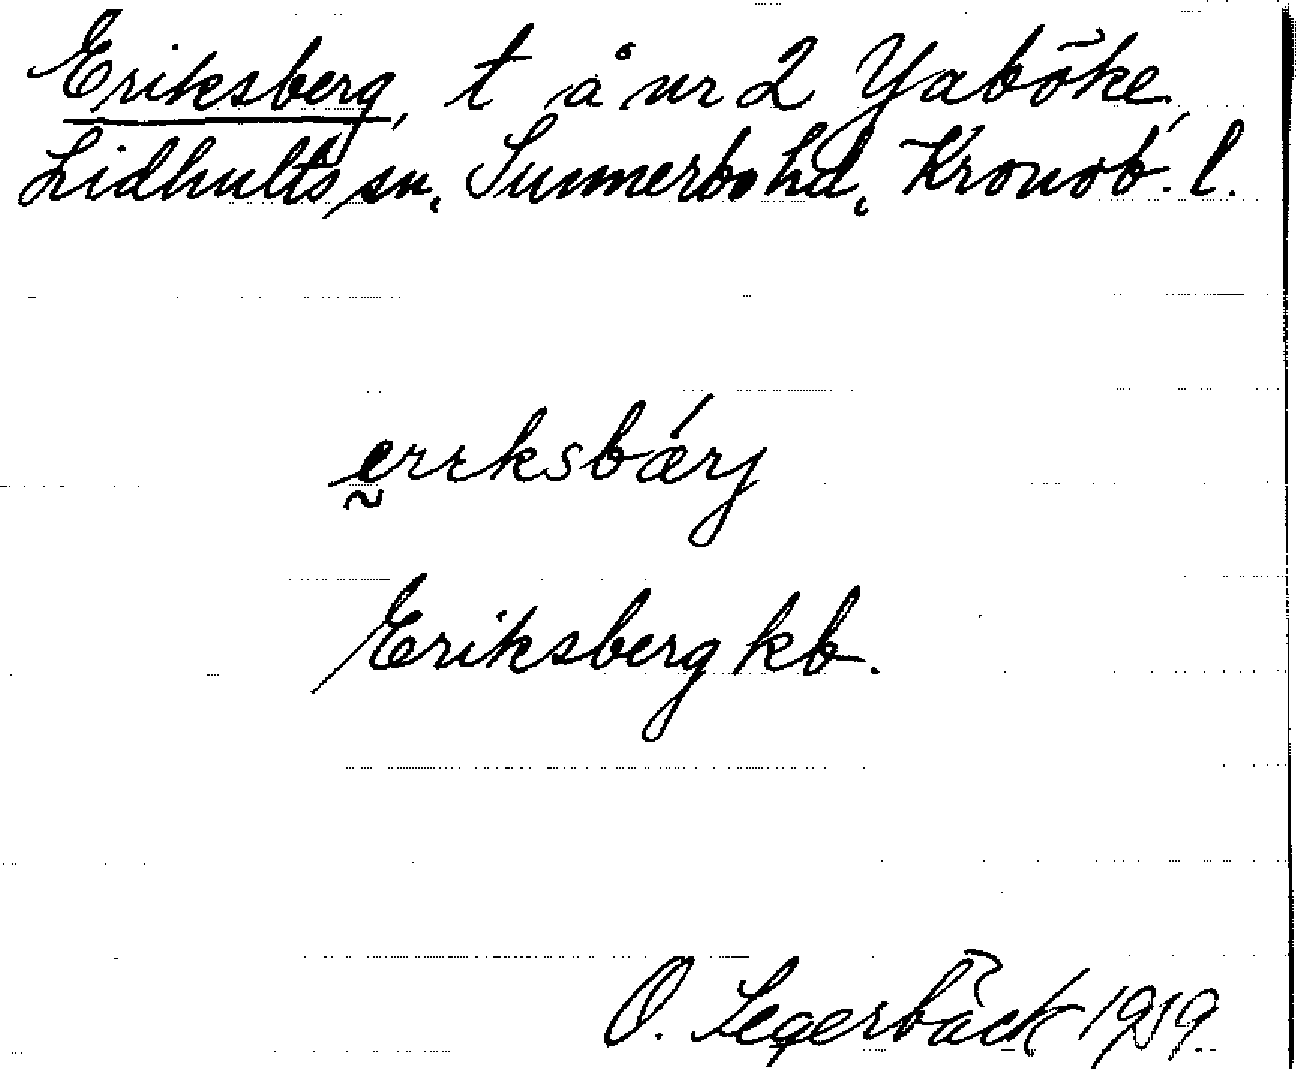 Eriksberg, t å nr 2 Yaböke,
Lidhults sn, Sunnerbo hd, Kronob. l.
erıksbárj
Eriksberg kb.
O. Segerbäck 1919.